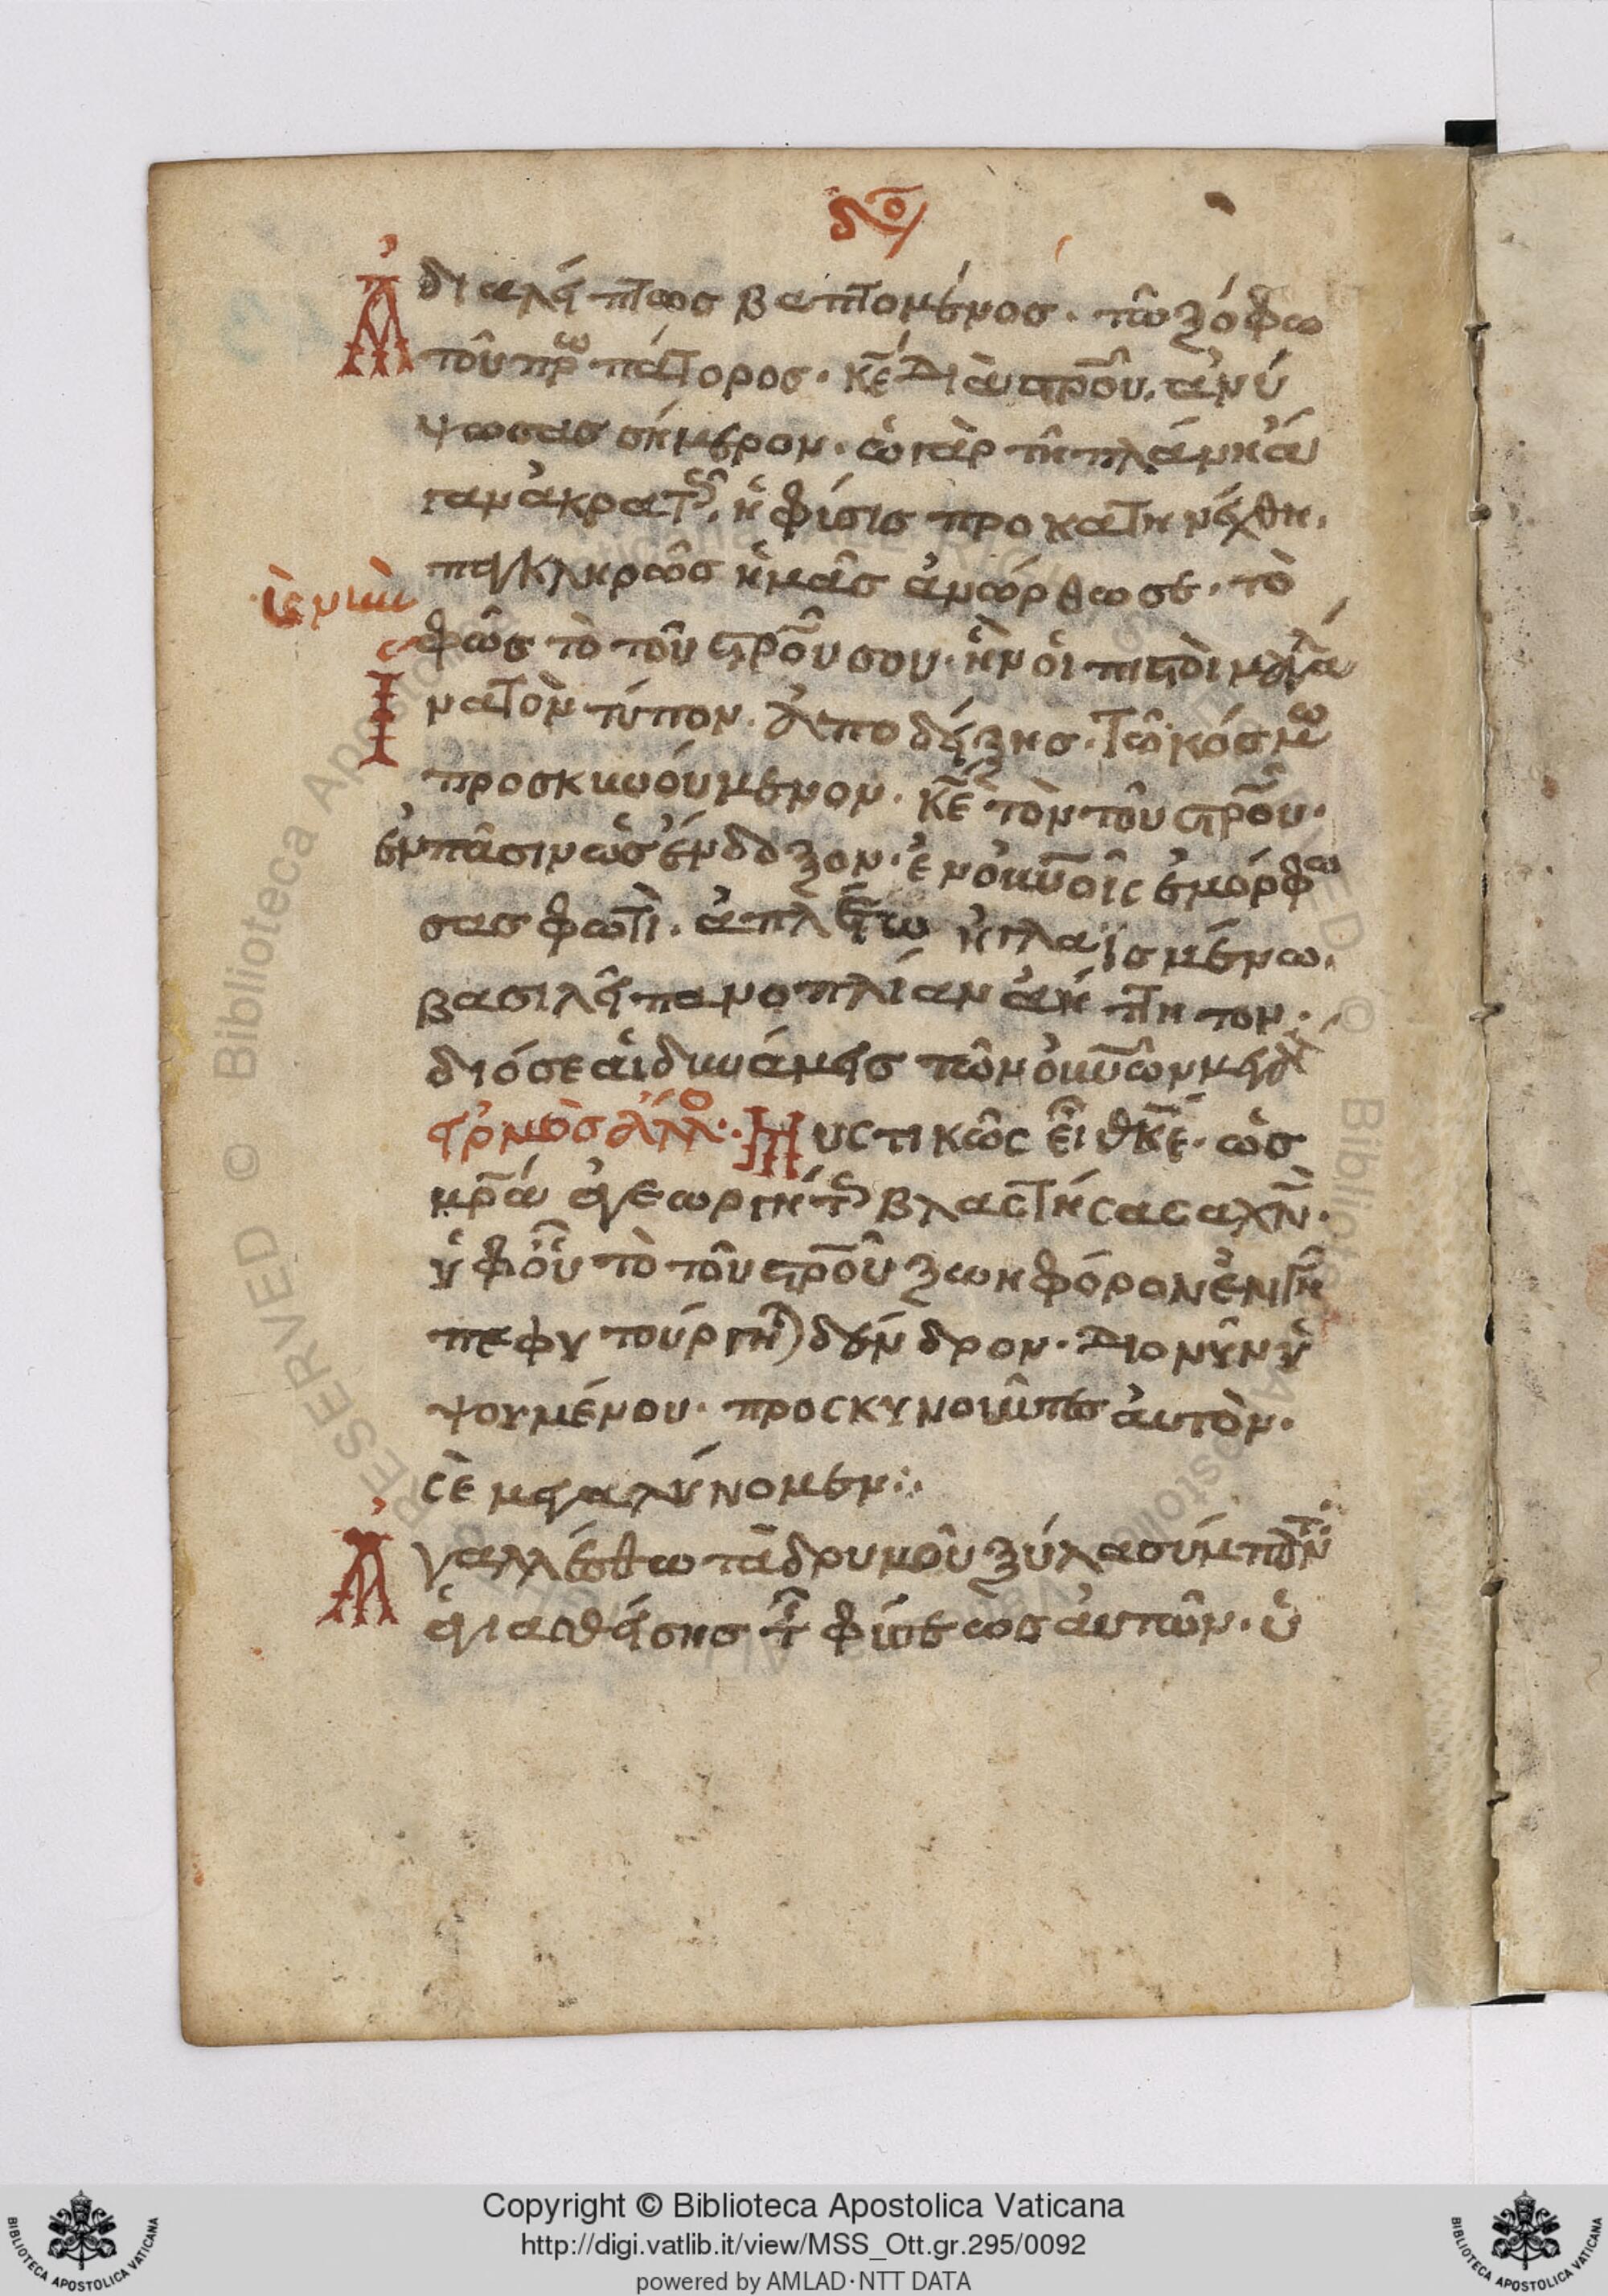 δο/
Ἀδιαλή πτως βαπτομένος. τῶ ζόφω
τοῦ πρω πάτορος. κε Διὰ στροῦ. ἀνύ
ψωσας σήμερον. ὡ γὰρ τῆ πλάνη ἄ
γαν ἀκρατς, ἡ φίσις προ κατη νέχθη.
παγκληρῶς ἡμᾶς ἀνώρθωσε. τὸ
φῶς τὸ τοῦ στροῦ σου. ἣν οἱ πιστοὶ μεγα
Ἵνα τὸν τύπον. ἀποδείξης. τῶ κόσμω
προσκινούμενον. κε τὸν τοῦ στροῦ.
ἐν πᾶσιν ὡς ἔνδοξον. ἐν οὐνοις ἐμόρφω
σας φωτὶ. ἀπλέτω ἠγλαϊσμένω.
βασιλεῖ πανοπλίαν ἀήττητον.
διό σε αἱ δυνάμεις τῶν οὐνῶν μεγα
εἱρμὸς ἄλλο. Μυστικῶς εἶ θκε. ὡς
μρ ἀγεωργήτς βλαστήσασα χν.
ὑφ οὗ τὸ τοῦ στροῦ ζωηφόρον ἐν γῆ
πεφυτούργη δένδρον. Διὸ νῦν ὑ
ψουμένου. προσκυνοῦντες ἀυτὸν.
σὲ μεγαλύνομεν:.
Ἀγαλλέσθω τὰ δρυμοῦ ξύλα σύμπαν
ἁγιασθείσης τ φίσεως ἀυτῶν. ὑ
Copyright © Biblioteca Apostolica Vaticana
http://digi.vatlib.it/view/MSS_Ott.gr.295/0092
powered by AMLAD·NTT DATA
BIBLIOTECA APOSTOLICA VATICANA
BIBLIOTECA APOSTOLICA VATICANA